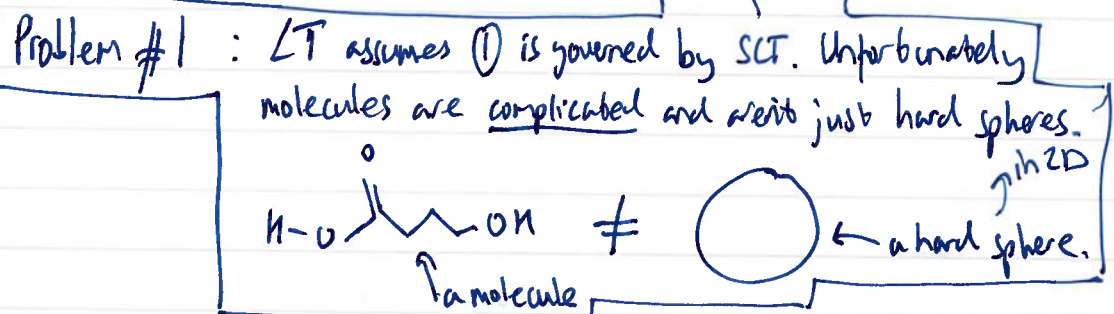 Problem #1 : LT assumes ① is governed by SCT. Unfortunately
molecules are complicated and aren't just hard spheres.
in 2D
O
H-O OH ≠ ← a hard sphere.
a molecule